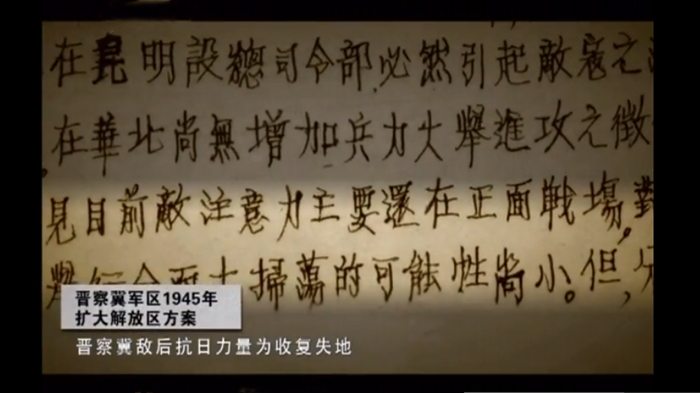 在昆明設總司令部必然引起敵寇之
在華北尚無增加兵力大舉進攻之徵
見目前敵注意力主要還在正面戰場。對
舉行全面大掃蕩的可能性尚小。但,
晋察冀军区1945年
扩大解放区方案
晋察冀敌后抗日力量为收复失地